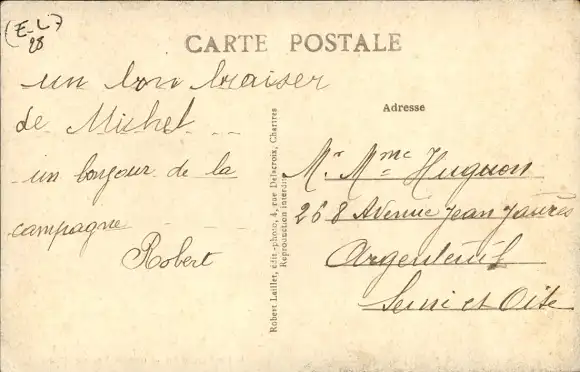 (E-L)
28
CARTE POSTALE
un bon baiser
de Michel
un bonjour de la
campagne
Robert
Robert Laillet, édit.-photo, 4, rue Delacroix, Chartres
Reproduction interdite
Adresse
Mr Mme Hugnon
268 Avenue Jean Jaurès
Argenteuil
Seine et Oise